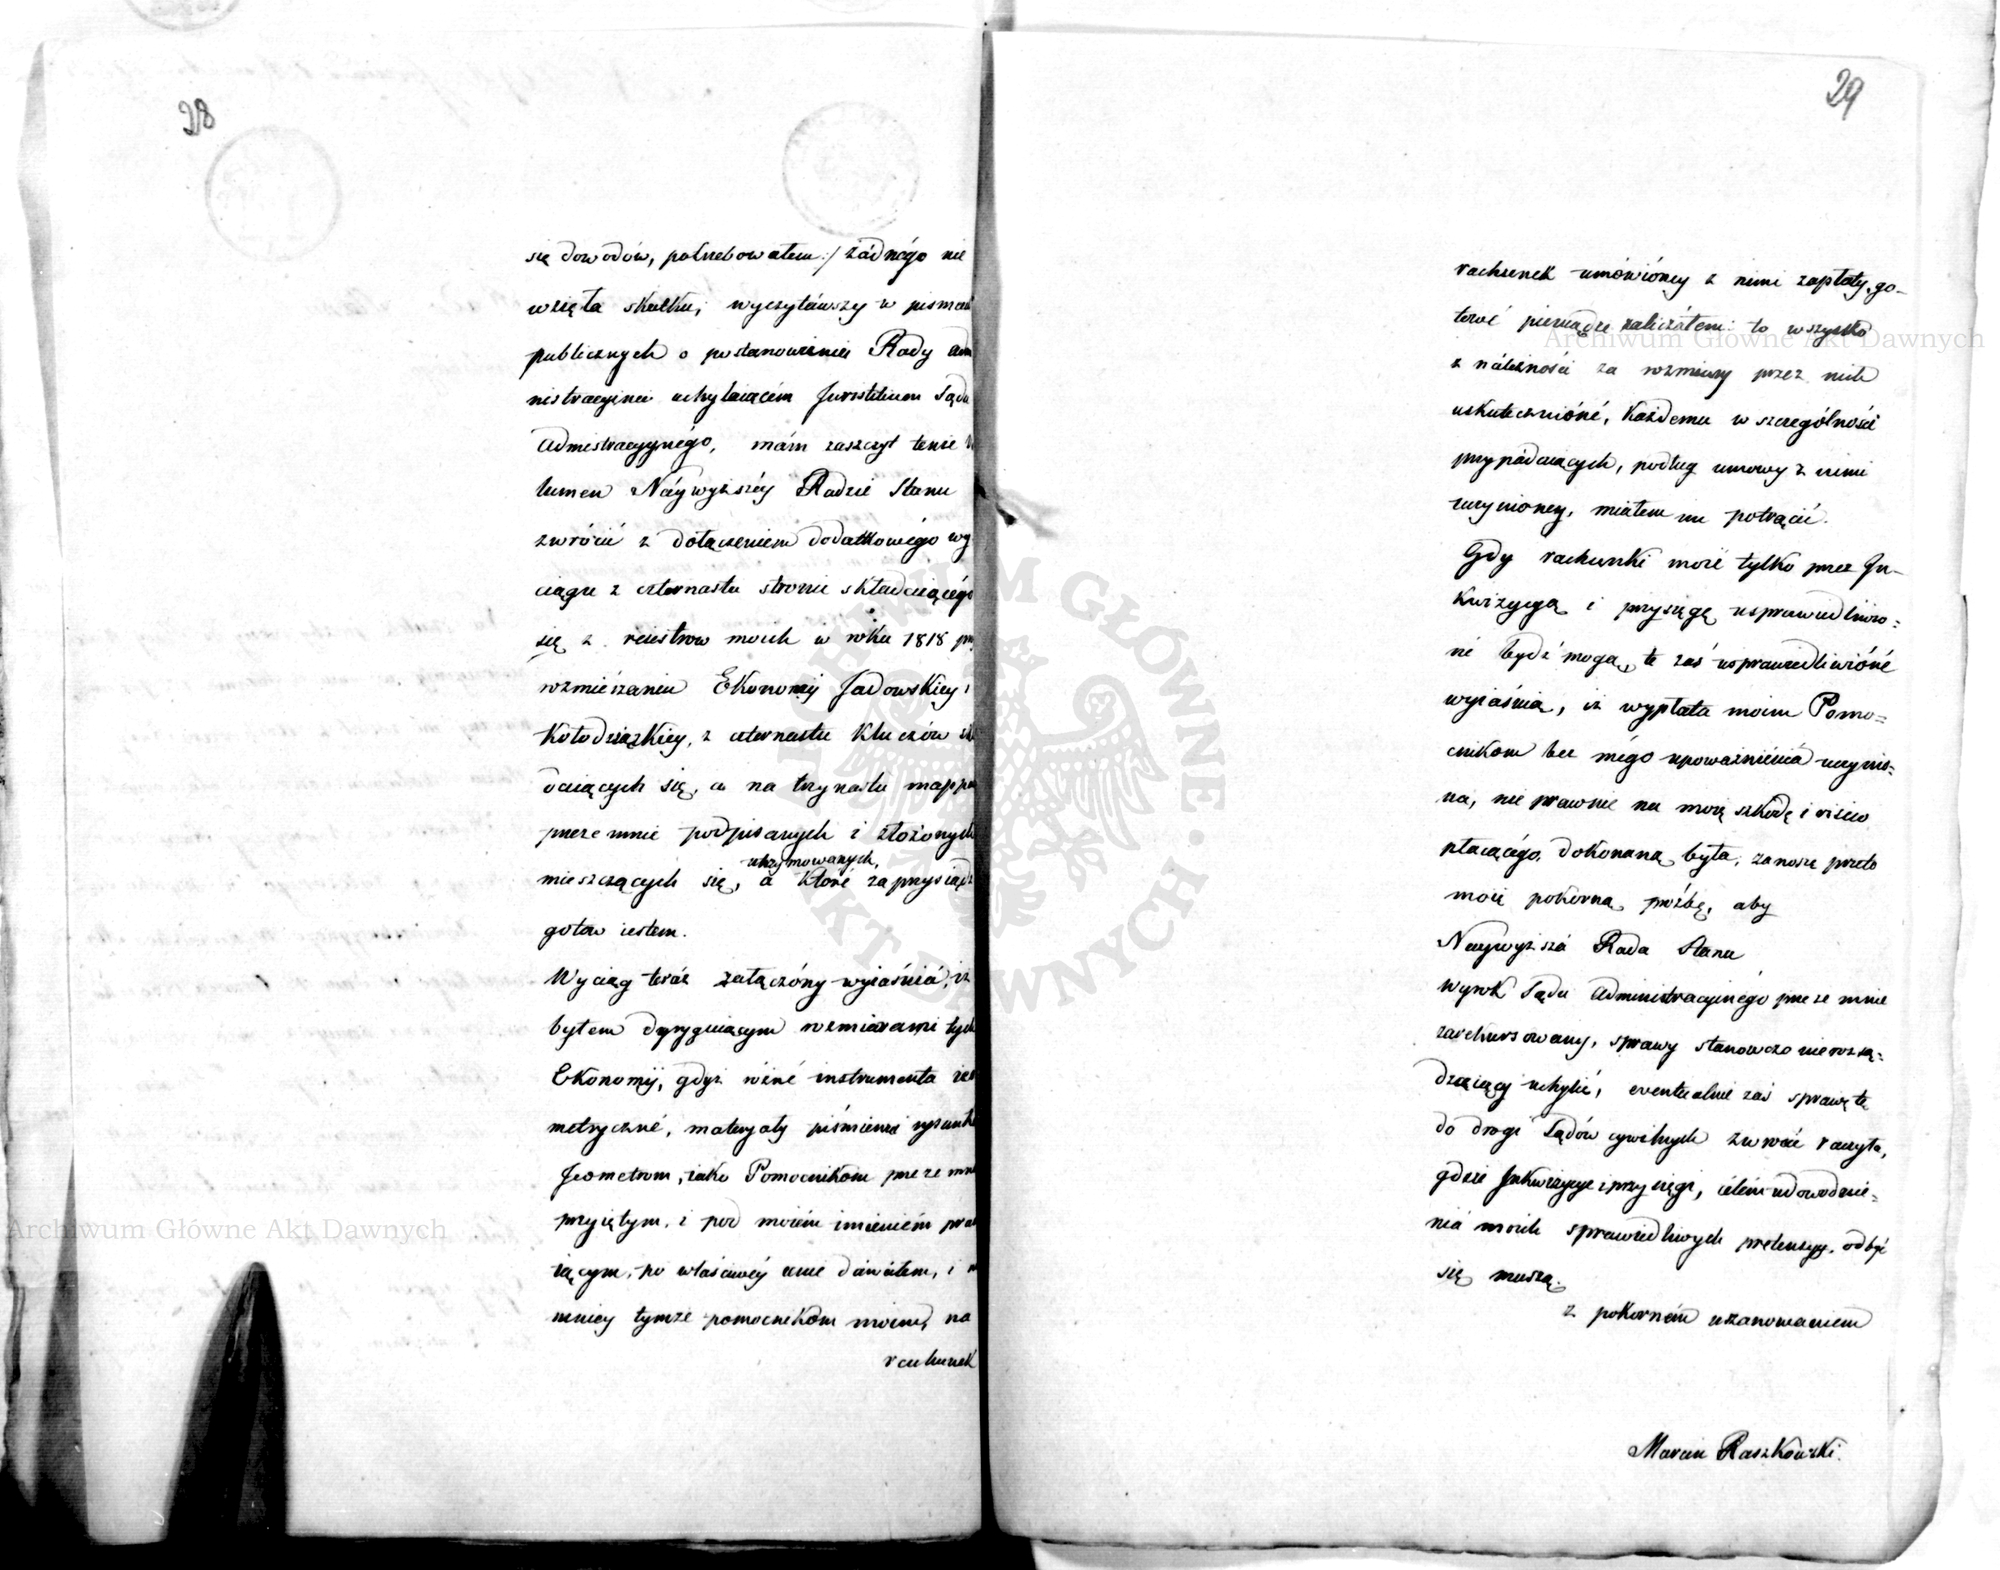 28
się dowodów, potrzebowałem:/ żádnégo nie
wzięła skutku; wyczytáwszy w pismach
publicznych o postanowieniu Rady adm
nistracyinéi uchylaiącém Juristitium Sądu
Admistracyynégo, mám zaszczyt tenże
lumen Náywyższéy Radzie Stanu
zwrócić z dołączeniem dodatkowégo wy
ciągu z czternastu stronic składaiącégo
się z reiestrow moich w roku 1818 prz
rozmierzaniu Ekonomij Jadowskiey i
Kołodziązkiey, z czternastu Kluczów skł
daiących się, a na trzynastu mappa
przezemnie podpisanych i złożonych
utrzymowanych,
mieszczących się, a które zaprzysiądz
gotów iestem.
Wyciąg teráz załączóny wyiaśniá, iż
byłem dyryguiącym rozmiarami tych
Ekonomij, gdyż różné instrumenta ieo
metryczné, materyały piśmienné rysunk
Jeometrom, iako Pomocnikom przezemn
przyiętym, i pod moiém imieniém prac
iącym, po właściwéy cenie dáwałem, i n
mniey tymże pomocnikom moim, na
rachunek
29
rachunek umówióney z nimi zapłaty, go-
towé pieniądze zaliczałem: to wszystko
z náleżności za rozmiary przez nich
uskutecznióné, każdemu w szczególności
przypádaiących, podług umowy z nimi
uczynioney, miałem im potrącić.
Gdy rachunki moie tylko przez In-
kwizycyą i przysięgę usprawiedliwio=
né bydź mogą, te zaś usprawiedliwióné
wyiaśnią, iż wypłata moim Pomo=
cnikom bez mégo upoważniéniá uczynio=
na, nie prawnie na moię szkodę i risico
płacącégo, dokonaną była; zanoszę przeto
moię pokorną proźbę, aby
Naywyższá Rada Stanu
Wyrok Sądu Administracyinégo przezemnie
zarekursowany, sprawy stanowczo nierozsą=
dzaiący uchylić, eventualnie zaś sprawę tę
do drogi Sądów cywilnych zwrócić raczyła,
gdzie Inkwizycye i przysięgi, célem udowodnie=
niá moich sprawiedliwych pretensyy, odbyć
się muszą.
z pokorném uszanowaniem
Marcin Raszkowski.
ARCHIWUM GŁÓWNE · AKT DAWNYCH ·
Archiwum Główne Akt Dawnych
Archiwum Główne Akt Dawnych